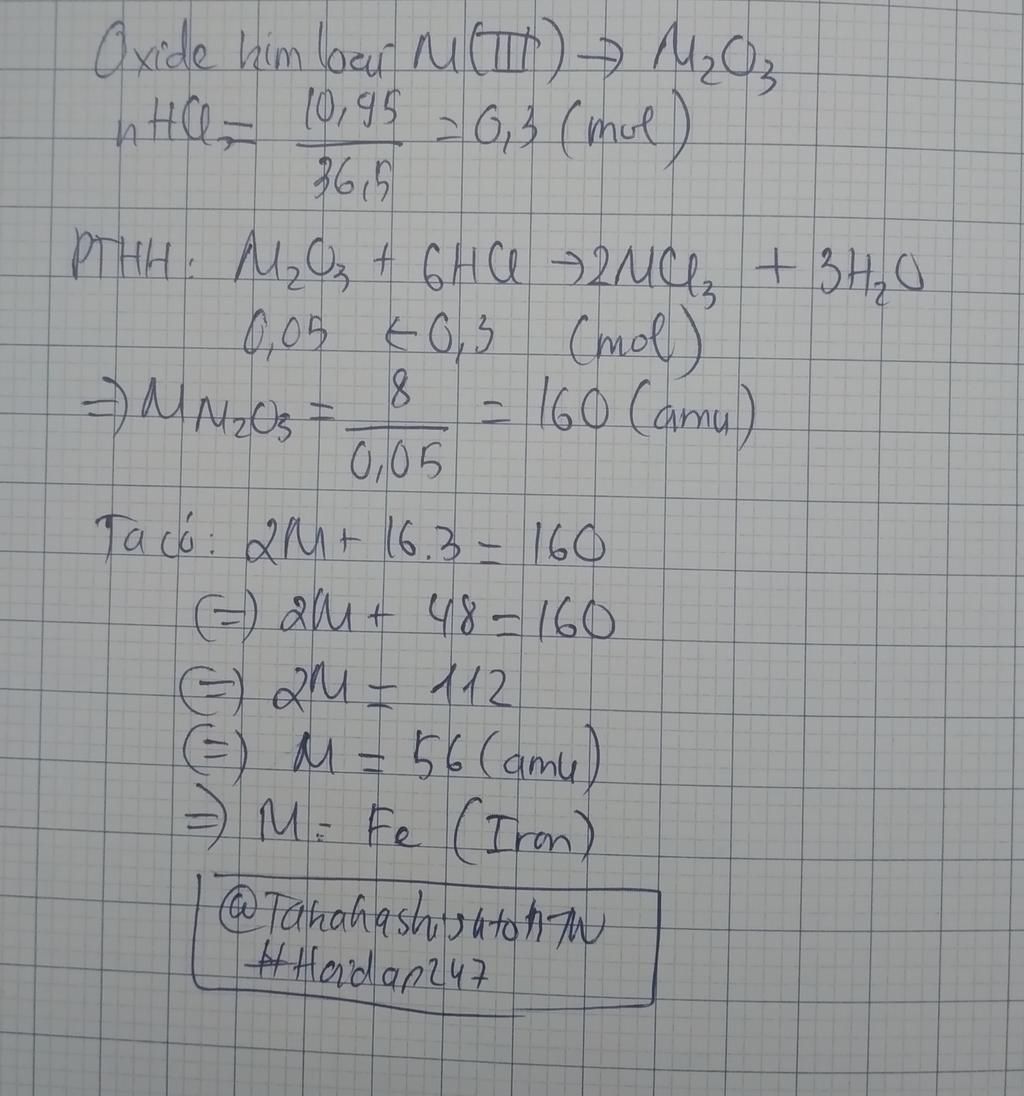 Oxide kim loại M(III) => M₂O₃
nHCl = 10,95 / 36,5 = 0,3 (mol)
PTHH: M₂O₃ + 6HCl → 2MCl₃ + 3H₂O
0,05 ← 0,3 (mol)
=> M M₂O₃ = 8 / 0,05 = 160 (amu)
Ta có: 2M + 16.3 = 160
(=) 2M + 48 = 160
(=) 2M = 112
(=) M = 56 (amu)
=> M = Fe (Iron)
#Hoidap247